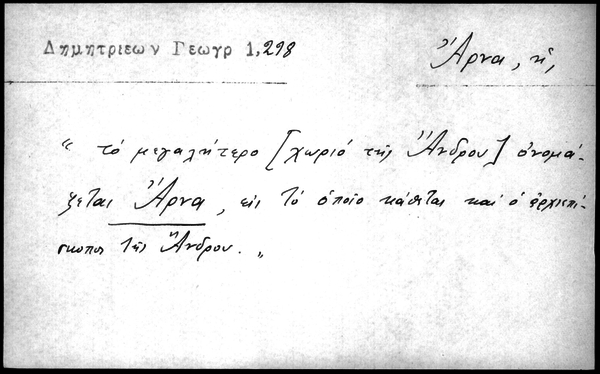 Δημητριεων Γεωγρ 1,298
Ἄρνα, ἡ,
“ τό μεγαλήτερο [χωριό τῆς Ἄνδρου] ὀνομά-
ζεται Ἄρνα, εἰς τό ὁποῖο κάθεται καί ὁ ἀρχιεπί-
σκοπος τῆς Ἄνδρου. „